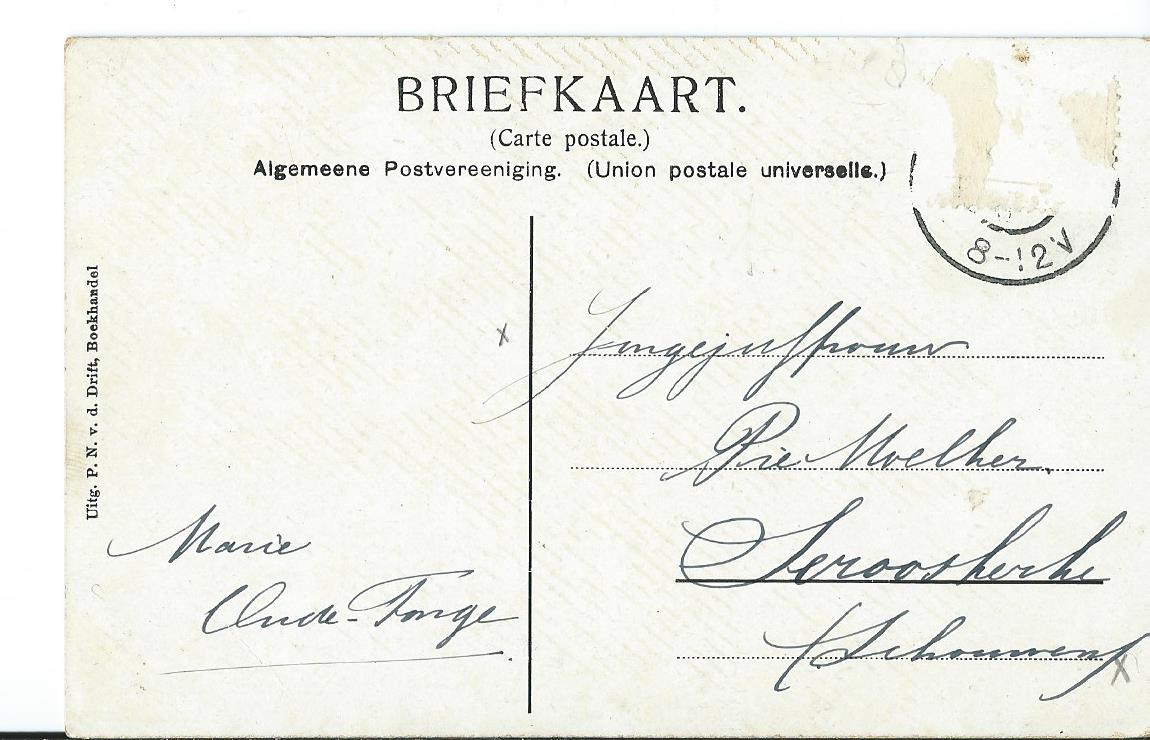 BRIEFKAART.
(Carte postale.)
Algemeene Postvereeniging. (Union postale universelle.)
8-12V
Uitg. P. N. v. d. Drift, Boekhandel
X
Jongejuffrouw
Pie Moelker.
Serooskerke
(Schouwen)
X
Marie
Oude-Tonge